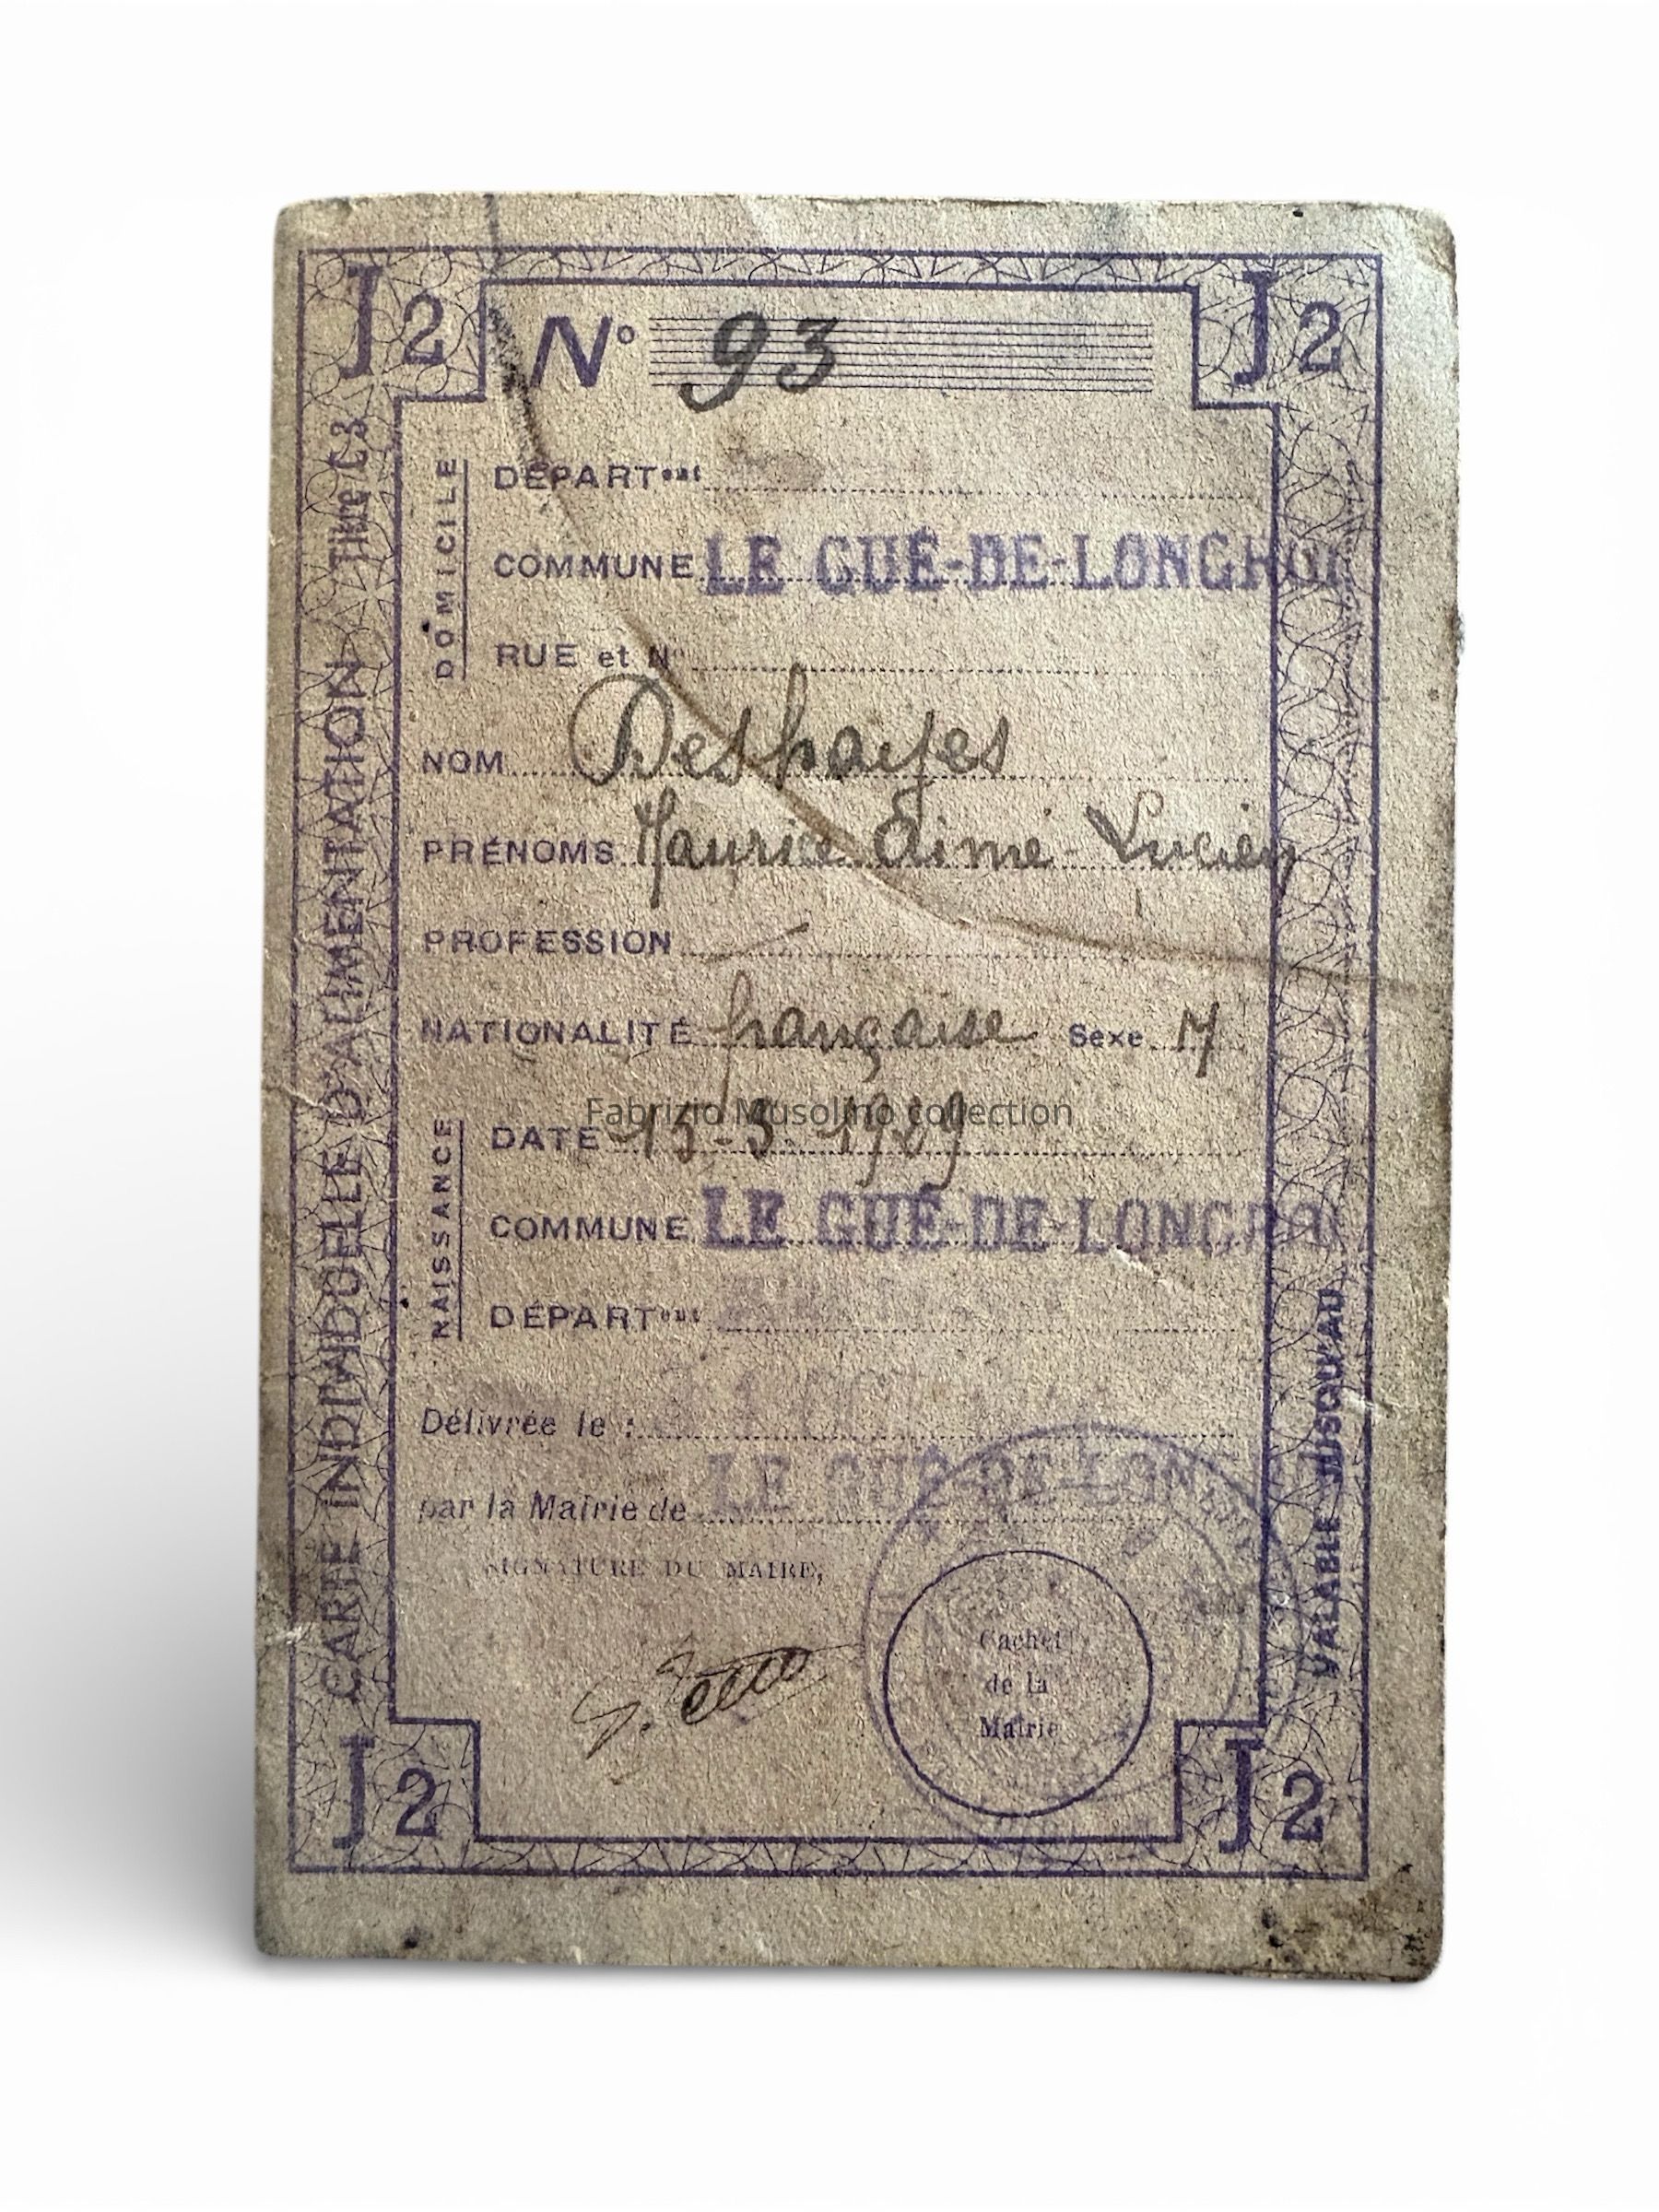 J2
J2
N° 93
DOMICILE
DÉPARTent
COMMUNE LE GUÉ-DE-LONGROI
RUE et N°
NOM Deshayes
PRÉNOMS Maurice Aimé-Lucien
PROFESSION
NATIONALITÉ française Sexe M
Fabrizio Musolino collection
NAISSANCE
DATE 15-3-1929
COMMUNE LE GUÉ-DE-LONGRO
DÉPARTent
Délivrée le :
par la Mairie de LE GUÉ-DE-LON
SIGNATURE DU MAIRE,
Cachet
de la
Mairie
J2
J2
CARTE INDIVIDUELLE D'ALIMENTATION Titre C3
VALABLE JUSQU'AU